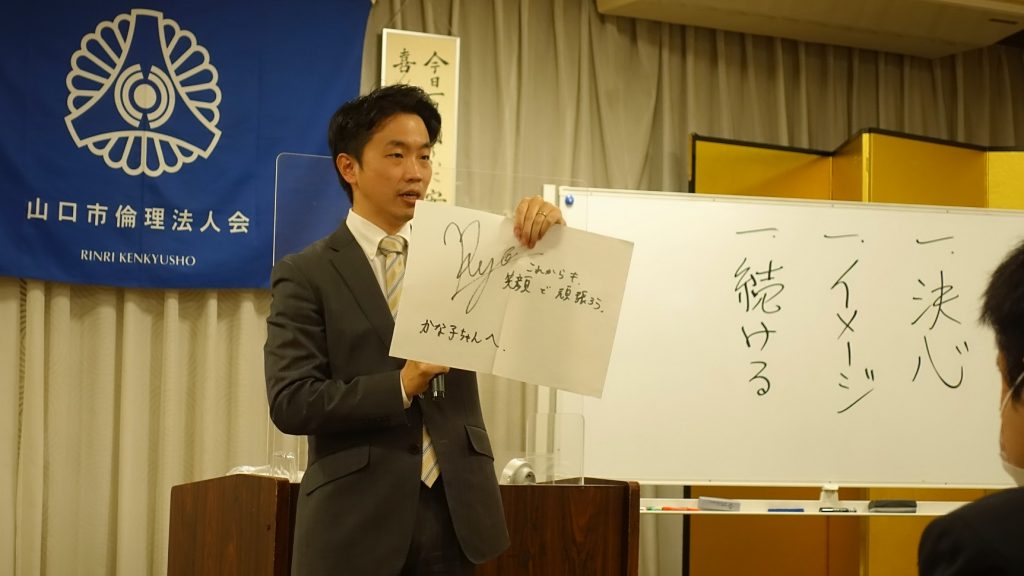 山口市倫理法人会
RINRI KENKYUSHO
今日一
喜
これからも
笑顔で頑張ろう。
かな子ちゃんへ.
一.決心
一.イメージ
一.続ける